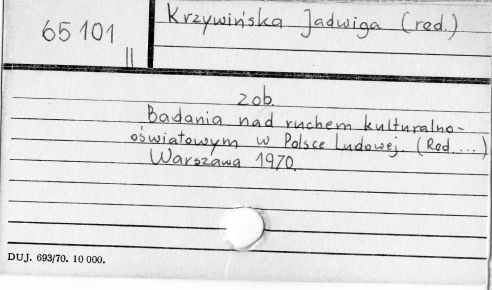 65101
II
Krzywińska Jadwiga (red.)
zob.
Badania nad ruchem kulturalno-
oświatowym w Polsce Ludowej. (Red ...)
Warszawa 1970.
DUJ. 693/70. 10 000.